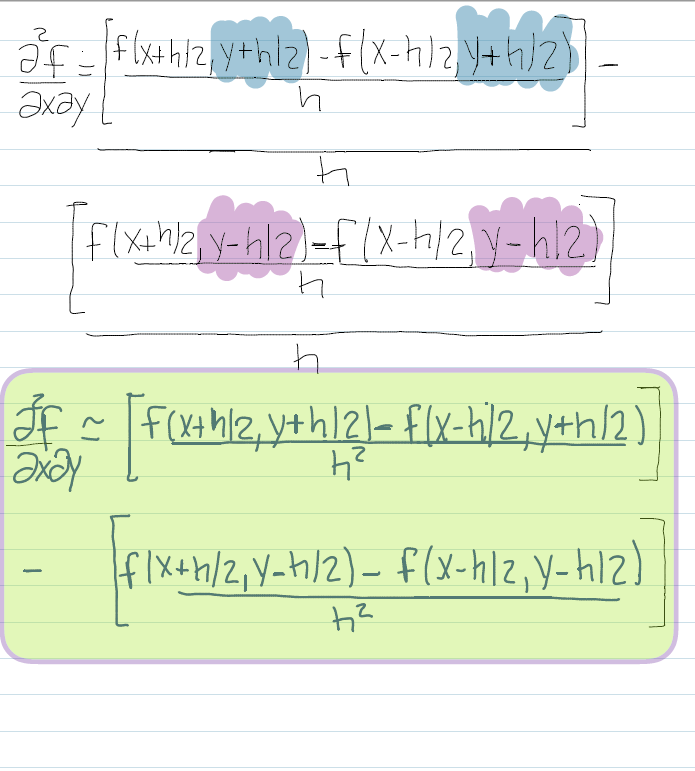 ∂²f/∂x∂y ≃ [(f(x+h/2, y+h/2) - f(x-h/2, y+h/2))/h] -
h
[(f(x+h/2, y-h/2) - f(x-h/2, y-h/2))/h]
h
∂²f/∂x∂y ≃ [(f(x+h/2, y+h/2) - f(x-h/2, y+h/2))/h²]
- [(f(x+h/2, y-h/2) - f(x-h/2, y-h/2))/h²]